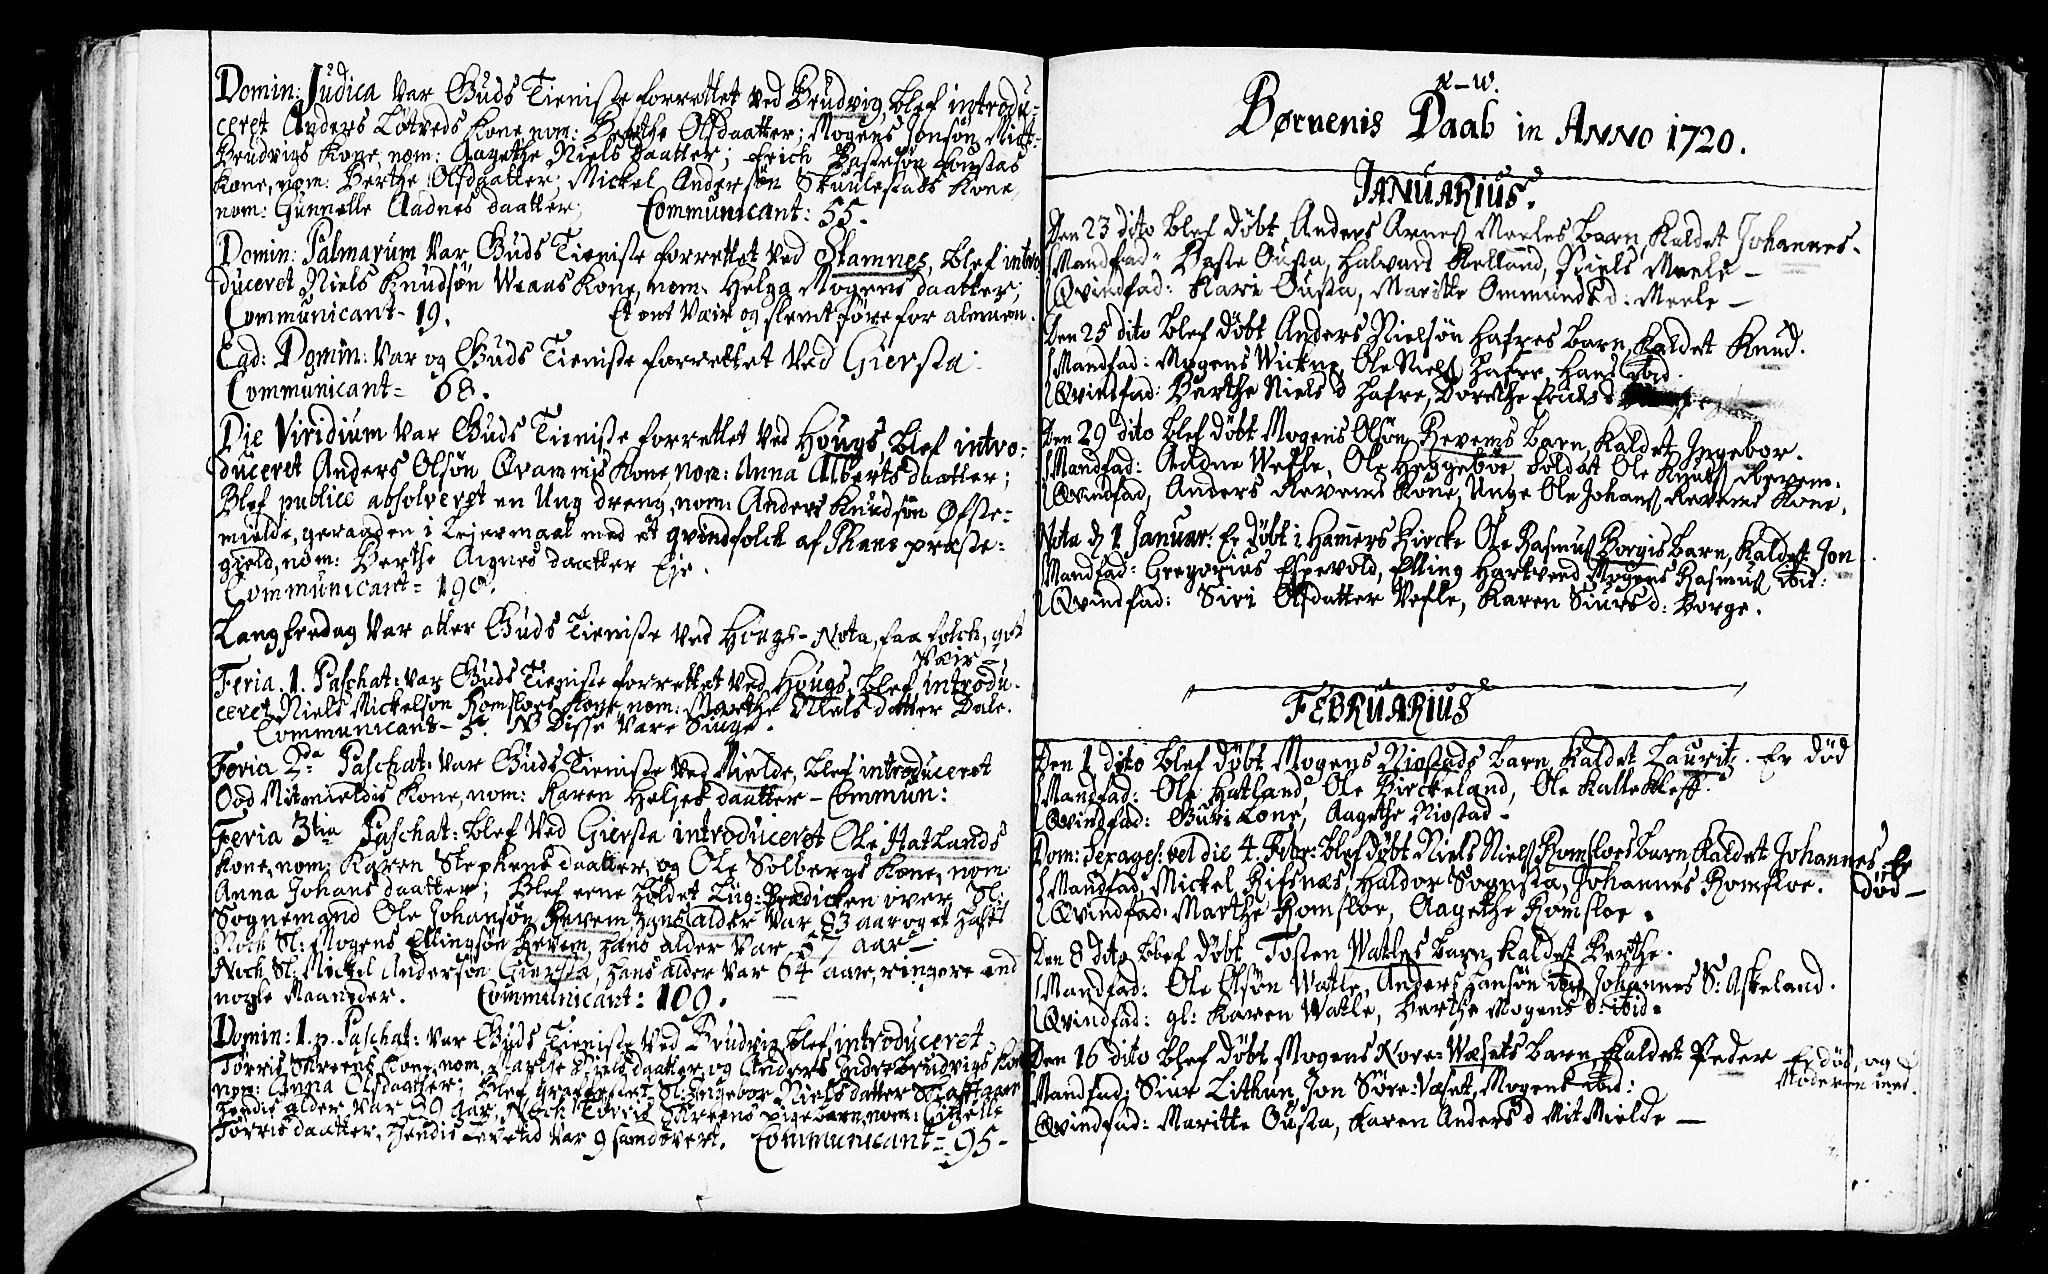 Domin: Judica var Guds Tieniste forrettet ved Brudvig, blef introdu-
ceret Anders Løtveds Kone nom: Berthe Olsdaatter; Mogens Jonsøn Mit-
Brudvigs Kone, nom: Aagethe Niels daatter; Erich
Kone, nom: Berthe Olsdaatter; Mickel Andersøn Skuulestads Kone,
nom: Gunnelle Aadnes daatter; Communicant: 55.
Domin: Palmarum var Guds Tieniste forrettet ved Stamnes, blef intro
duceret Niels Knudsøn Waas Kone, nom. Helga Mogens daatter;
Communicant- 19. Et ont Vær og slemt føre for almuen.
Ead: Domin: var og Guds Tieniste forrettet ved Giersta:
Communicant= 68.
Die Viridium var Guds Tieniste forrettet ved Hougs, blef intro-
duceret Anders Olsøn Qvammis Kone, nom: Anna Alberts daatter;
Blef publice absolveret en Ung dreng, nom: Anders Knudsøn Øfste-
mielde, geraaden i Leiermaal med et qvindfolck af Phane præste-
gield, nom: Berthe Aignes daatter Eje.
Communicant= 190.
Langfredag var atter Guds Tieniste ved Hougs- Nota, faa folck, got
Vær -
Feria. 1. Paschat: var Guds Tieniste forrettet ved Hougs, blef introdu-
ceret Niels Mickelsøn Romsloes Kone, nom: Marthe Niels datter Dale.
Communicant- 5. N Disse vare Siuge.
Feria 2da Paschat: var Guds Tieniste ved Mielde, blef introduceret
Odd Mitmieldis Kone, nom: Karen Heljes daatter - Commun:
Feria 3tia Paschat: blef ved Giersta introduceret Ole Hatlands
Kone, nom: Karen Stephens daatter, og Ole Solbergs Kone, nom
Anna Johans daatter; Blef erne holdet Liig-Prædicken over Sl:
Sognemand Ole Johansøn Revem hans alder var 83 aar og et halft
Noch Sl: Mogens Ellingsøn Revem, hans alder var 57 aar -
Noch Sl: Mickel Andersøn Giersta, hans alder var 64 aar, ringere end
nogle Maaneder. Communicant: 109.
Domin: 1. p. Paschat: var Guds Tieniste ved Brudvig, blef introduceret
Torris Kone, nom, Marthe Niels daatter, og Anders Indre Brudvigs Kone
nom: Anna Olsdaatter; Blef Sl: Ingebor Niels datter
hendis alder var 29 aar. Noch Torris pigebarn, nom:
Torris daatter, hendis Levetid var 9 samdøvert. Communicant= 95-
x-w.
Børnenis Daab in ANNO 1720.
IANUARIUS.
Den 23 dito blef døbt Anders Arnes Meeles barn, Kaldet Johannes-
Mandfad= Baste Ousta, Halvard Kelland, Niels Meele -
Qvindfad: Kari Ousta, Maritte Ommunds d: Meele -
Den 25 dito blef døbt Anders Nielsøn Hafres barn, Kaldet Knud.
Mandfad: Mogens Wickne, Ole Niels Hafre, Hans ibid.
Qvindfad: Berthe Niels d Hafre, Dorethe Erichs d
Den 29 dito blef døbt Mogens Olsøn Revems barn, Kaldet Ingebor.
Mandfad: Aadne Wefle, Ole Heggebøe, Soldat Ole Knuds Revem.
Qvindfad, Anders Revems Kone, Unge Ole Johans Revems Kone.
Nota d 1 Januar: Er døbt i Hamers Kircke Ole Rasmus Borgis barn, Kaldet Jon
Mandfad: Gregorius Espevold, Elling Hartveed Mogens Rasmus ibid:
Qvindfad: Siri Olsdatter Vefle, Karen Siurs d: Borge.
FEBRUARIUS
Den 1 dito blef døbt Mogens Niostads barn, Kaldet Lauritz. Er død
Mandfad: Ole Hatland, Ole Birckeland, Ole Kattekleff.
Qvindfad: Guri Lone, Aagethe Niostad-
Dom: Sexages: vel die 4. Febr: blef døbt Niels Niels Romsloes barn, Kaldet Johannes. Er
død -
Mandfad: Mickel Rifsnæs, Haldor Sognsta, Johannes Romsloe.
Qvindfad: Marthe Romsloe, Aagethe Romsloe.
Den 8 dito blef døbt Tosten Watles barn, Kaldet Berthe.
Mandfad: Ole Olsøn Watle, Anders Hansøn ibid, Johannes S: Askeland.
Qvindfad: gl: Karen Watle, Berthe Mogens d: ibid.
Den 16 dito blef døbt Mogens Nore=Wæsets barn, Kaldet Peder Er død, og
Moderen med.
Mandfad: Siur Lithun, Jon Søre=Væset, Mogens ibid:
Qvindfad: Maritte Ousta, Karen Anders d Mit Mielde -